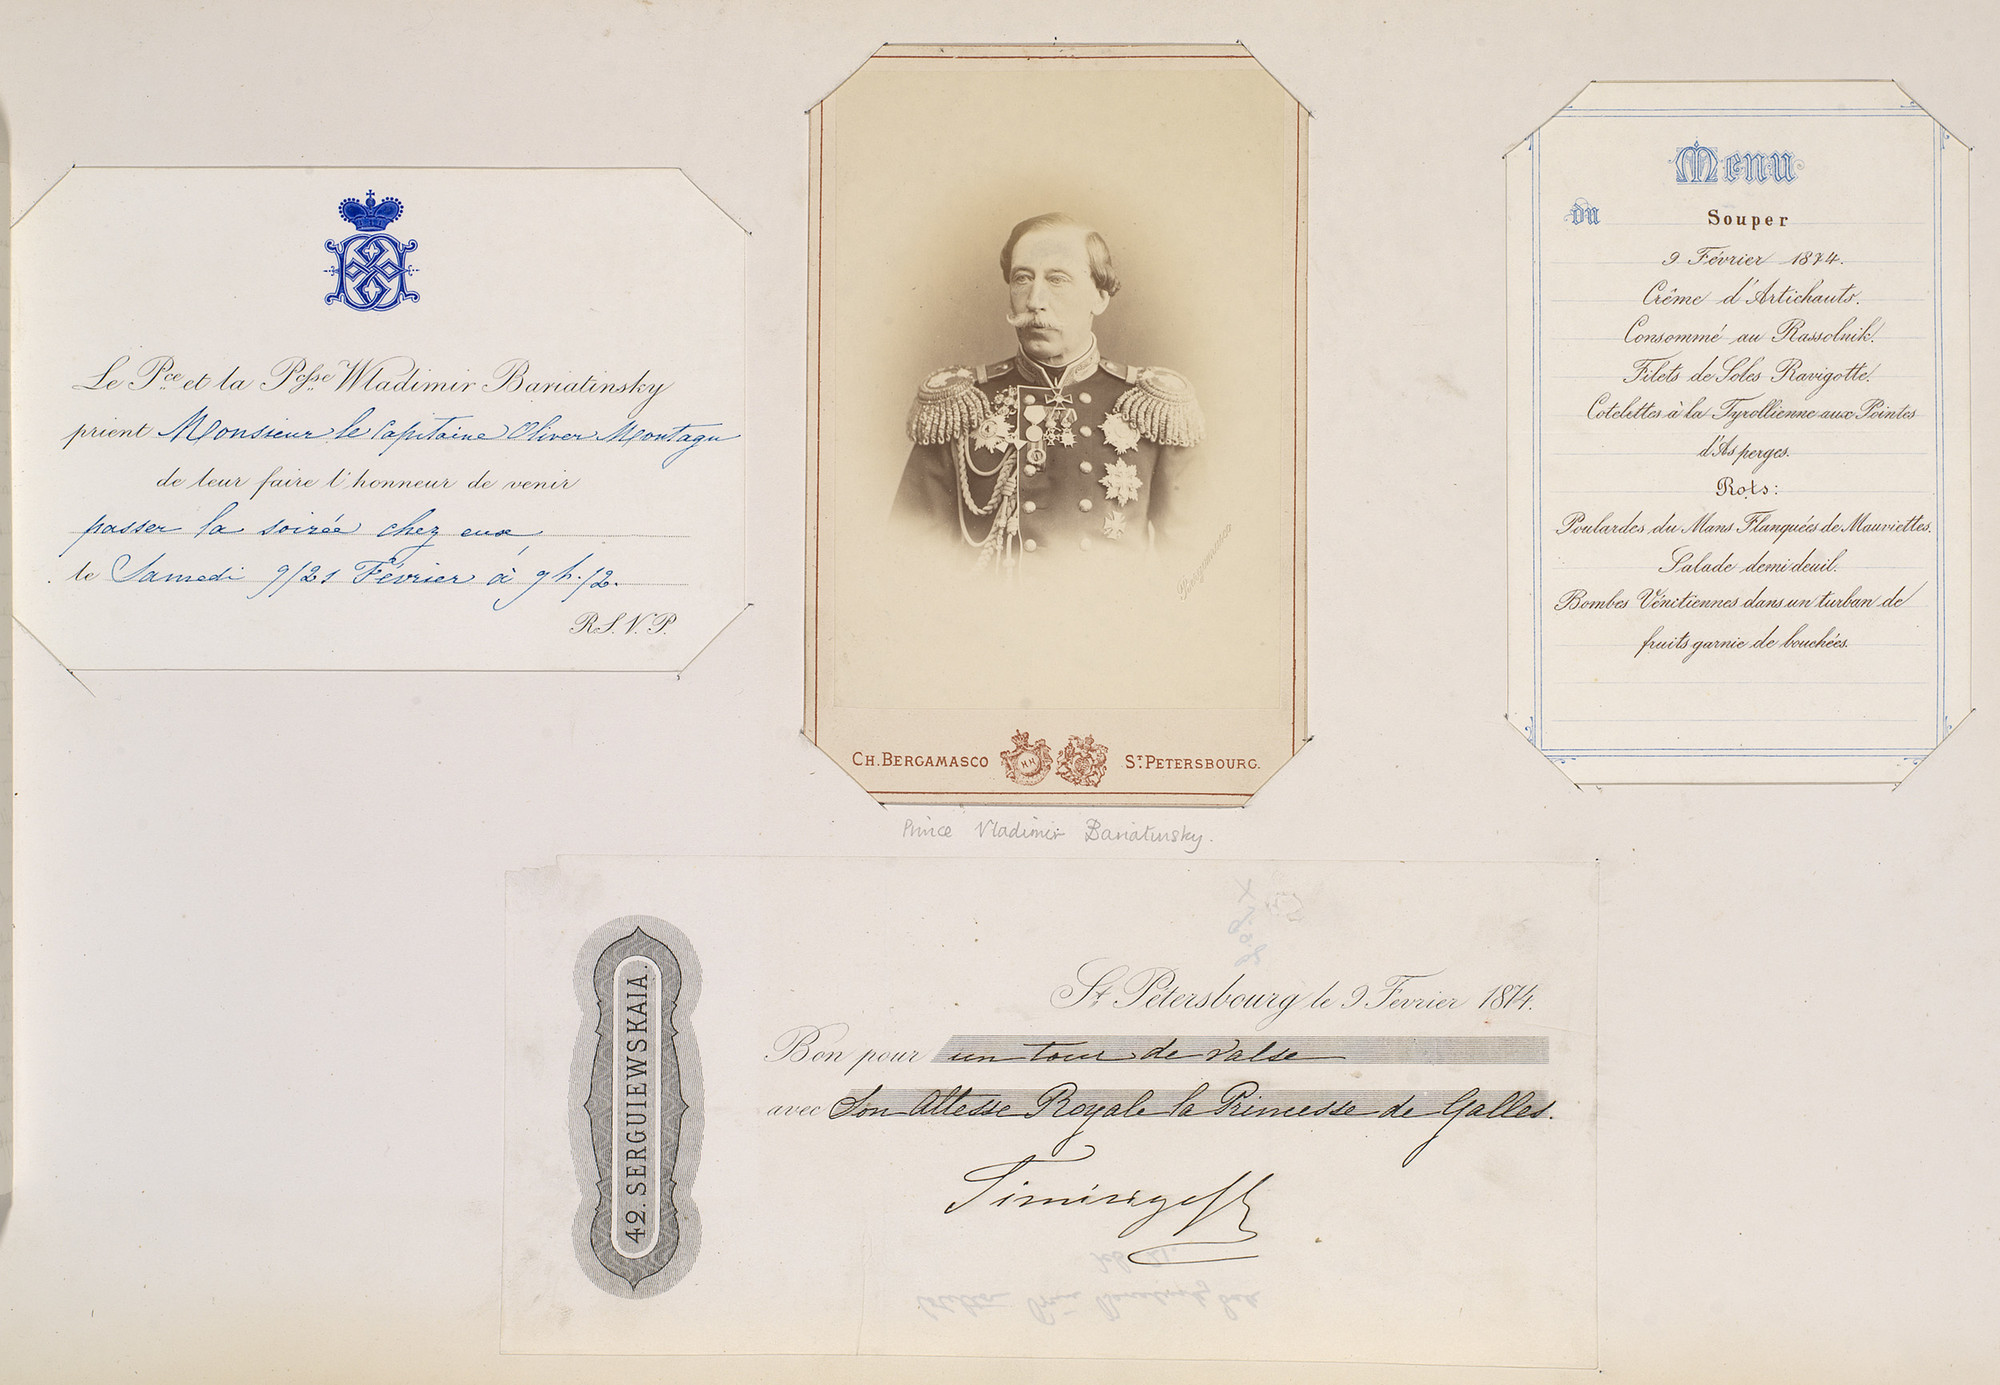 Le Pce et la Pcsse Wladimir Bariatinsky
prient Monsieur le Capitaine Oliver Montagu
de leur faire l'honneur de venir
passer la soirée chez eux
le Samedi 9/21 Février à 9 h. /2.
R.S.V.P.
Bergamasco
CH. BERGAMASCO
ST PETERSBOURG.
Prince Vladimir Bariatinsky.
Menu
du Souper
9 Février 1874.
Crême d'Artichauts.
Consommé au Rassolnik.
Filets de Soles Ravigotte.
Cotelettes à la Tyrollienne aux Pointes
d'Asperges.
Rots:
Poulardes du Mans Flanquées de Mauviettes.
Salade demideuil.
Bombes Vénitiennes dans un turban de
fruits garnie de bouchées.
42. SERGUIEWSKAIA.
St Petersbourg le 9 Fevrier 1874.
Bon pour un tour de valse
avec Son Altesse Royale la Princesse de Galles.